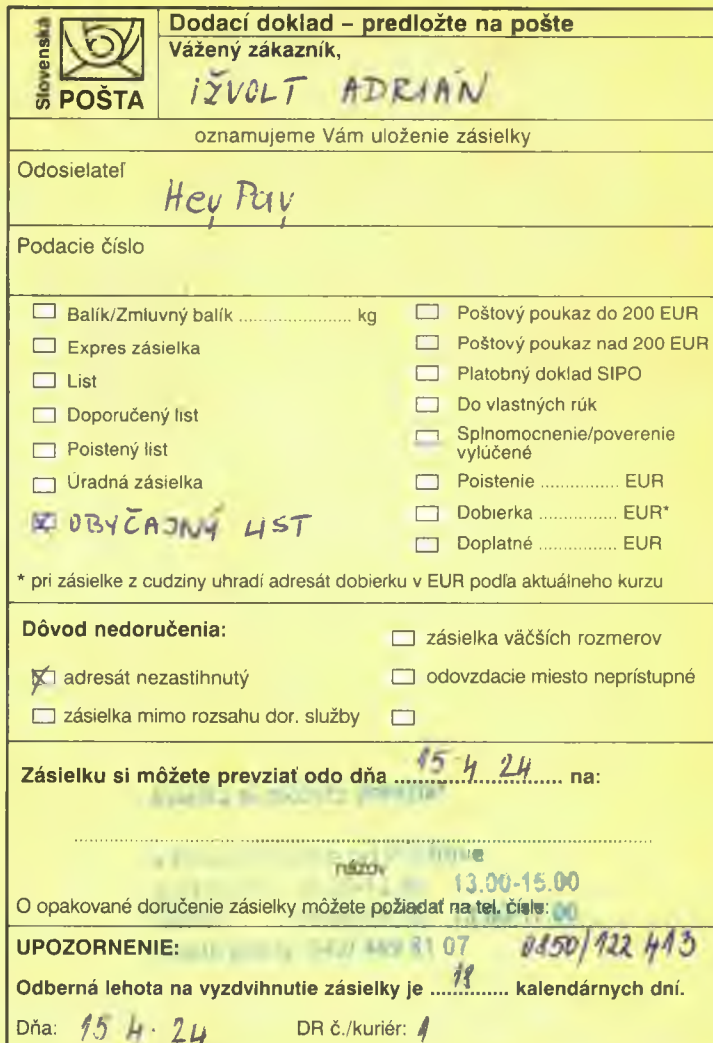 Slovenská
POŠTA
Dodací doklad – predložte na pošte
Vážený zákazník,
IŽVOLT ADRIÁN
oznamujeme Vám uloženie zásielky
Odosielateľ
Hey Pay
Podacie číslo
Balík/Zmluvný balík ...................... kg
Expres zásielka
List
Doporučený list
Poistený list
Úradná zásielka
OBYČAJNÝ LIST
Poštový poukaz do 200 EUR
Poštový poukaz nad 200 EUR
Platobný doklad SIPO
Do vlastných rúk
Splnomocnenie/poverenie
vylúčené
Poistenie ............... EUR
Dobierka ............... EUR*
Doplatné ............... EUR
* pri zásielke z cudziny uhradí adresát dobierku v EUR podľa aktuálneho kurzu
Dôvod nedoručenia:
zásielka väčších rozmerov
adresát nezastihnutý
odovzdacie miesto neprístupné
zásielka mimo rozsahu dor. služby
Zásielku si môžete prevziať odo dňa 15 4 24 na:
názov
13.00-15.00
O opakované doručenie zásielky môžete požiadať na tel. čísle:
UPOZORNENIE: 0850/122 413
Odberná lehota na vyzdvihnutie zásielky je 18 kalendárnych dní.
Dňa: 15 4. 24 DR č./kuriér: 1